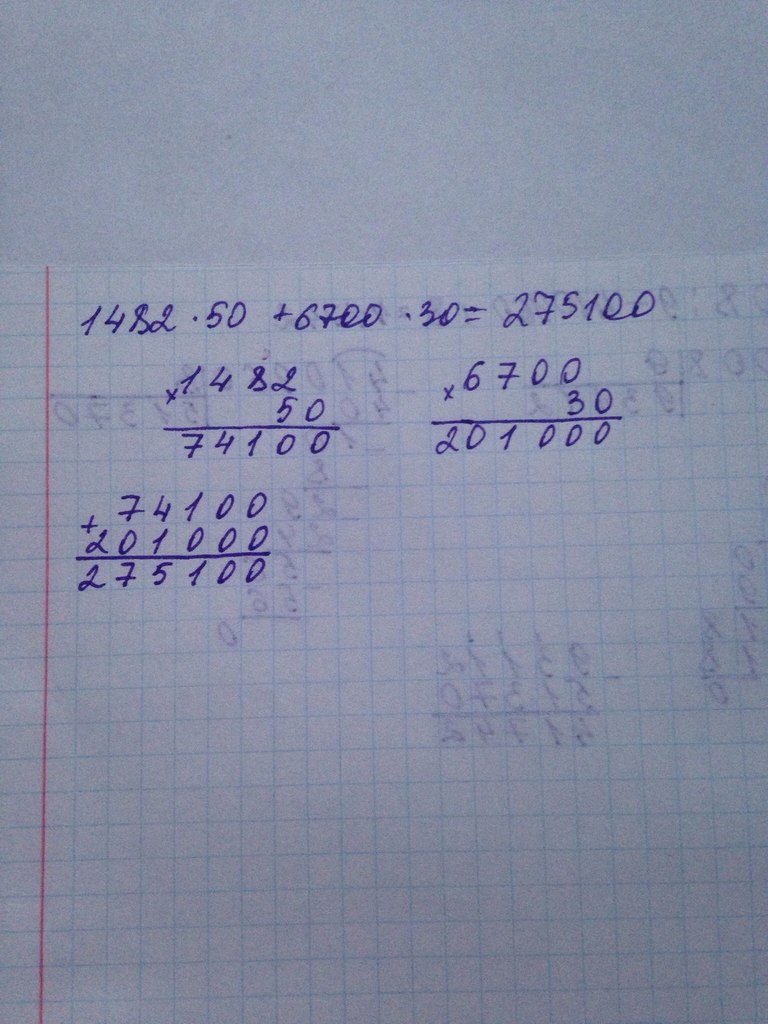 1482 · 50 + 6700 · 30 = 275100
× 1482
50
74100
× 6700
30
201000
+ 74100
201000
275100